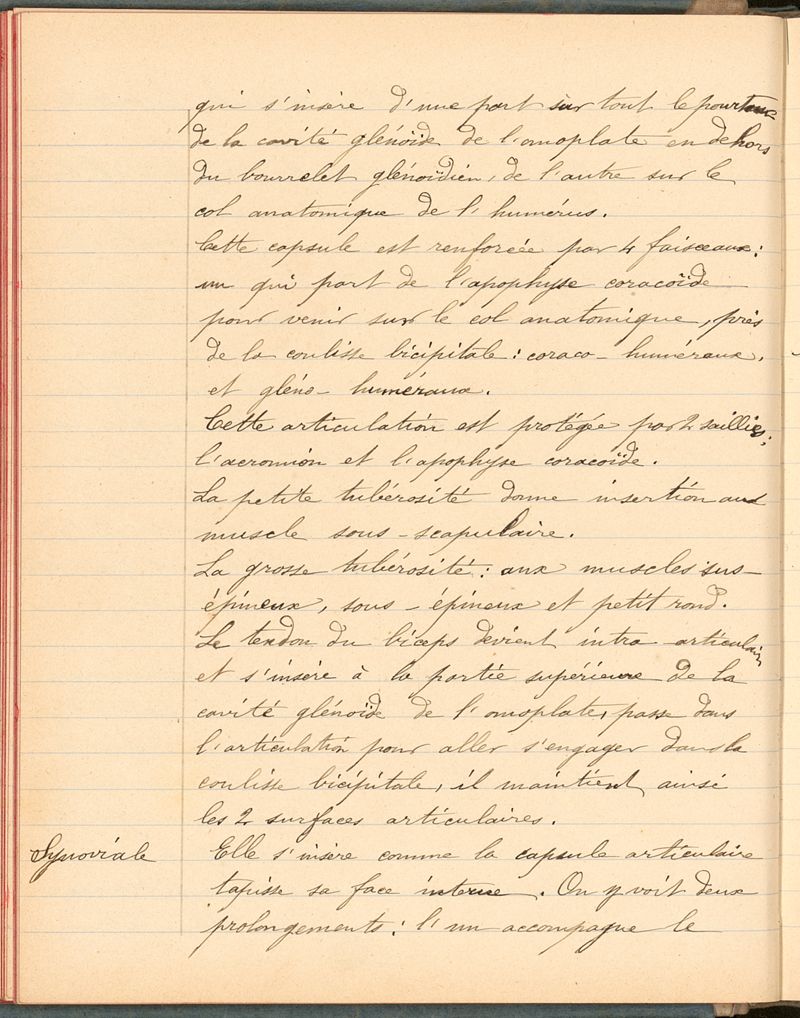 qui s'insère d'une part sur tout le pourtour
de la cavité glénoïde de l'omoplate en dehors
du bourrelet glénoïdien, de l'autre sur le
col anatomique de l'humérus.
Cette capsule est renforcée par 4 faisceaux:
un qui part de l'apophyse coracoïde
pour venir sur le col anatomique, près
de la coulisse bicipitale: coraco-huméraux,
et gléno-huméraux.
Cette articulation est protégée par 2 saillies:
l'acromion et l'apophyse coracoïde.
La petite tubérosité donne insertion au
muscle sous-scapulaire.
La grosse tubérosité: aux muscles sus-
épineux, sous-épineux et petit rond.
Le tendon du biceps devient intra-articulaire
et s'insère à la partie supérieure de la
cavité glénoïde de l'omoplate, passe dans
l'articulation pour aller s'engager dans la
coulisse bicipitale, il maintient ainsi
les 2 surfaces articulaires.
Synoviale Elle s'insère comme la capsule articulaire
tapisse sa face interne. On y voit deux
prolongements: l'un accompagne le